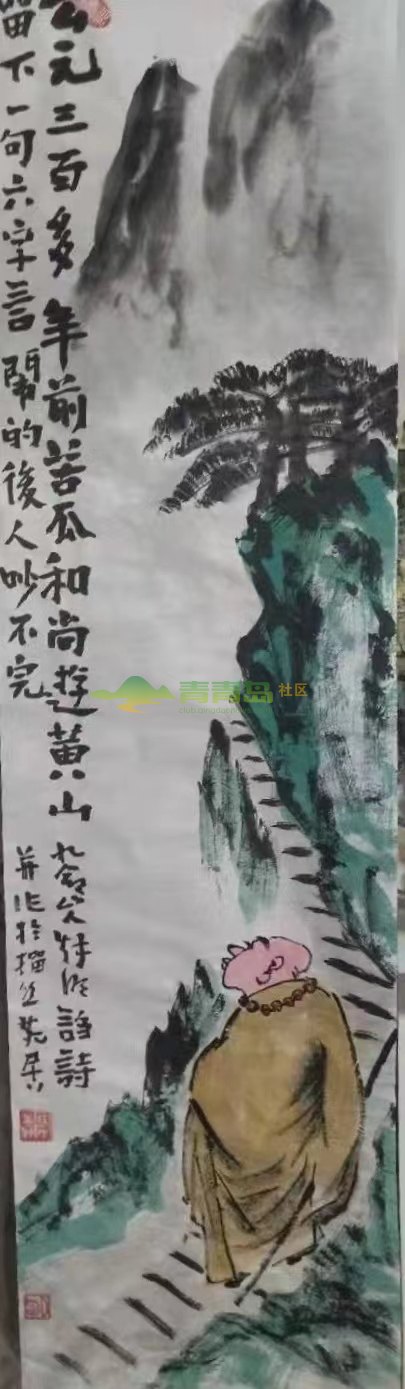 公元三百多年前苦瓜和尚游黄山
留下一句六字言闹的後人吵不完
诗
青青岛社区
club.qingdaonews.com